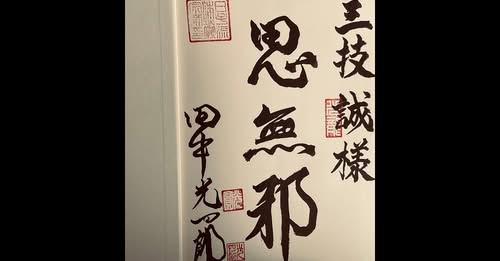 三技誠様
思無邪
田中光四郎